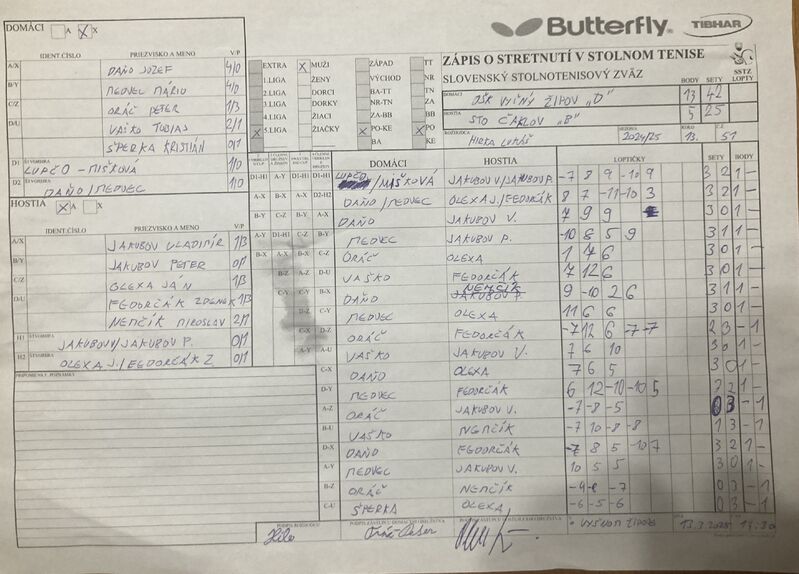 DOMÁCI A X
Butterfly TIBHAR
IDENT.ČÍSLO PRIEZVISKO A MENO V/P
A/X DAŇO JOZEF 4/0
B/Y MEDVEC MÁRIO 4/0
C/Z ORÁČ PETER 1/3
D/U VAŠKO TOBIAS 2/1
ŠPERKA KRISTIÁN 0/1
D1 ŠTVORHRA LUPČO - MIŠKOVÁ 1/0
D2 ŠTVORHRA DAŇO/MEDVEC 1/0
EXTRA X MUŽI ZÁPAD TT
1.LIGA ŽENY VÝCHOD NR
2.LIGA DORCI BA-TT TN
3.LIGA DORKY NR-TN ZA
4.LIGA ŽIACI ZA-BB BB
X 5.LIGA ŽIAČKY X PO-KE X PO
BA KE
ZÁPIS O STRETNUTÍ V STOLNOM TENISE
SLOVENSKÝ STOLNOTENISOVÝ ZVÄZ
BODY SETY SSTZ LOPTIČKY
DOMÁCI OŠK VYŠNÝ ŽIPOV "D" 13 42
HOSTIA STO ČAKLOV "B" 5 25
ROZHODCA HIRKA LUKÁŠ SEZONA 2024/25 KOLO 13. Č.Z. 51
HOSTIA X A X
IDENT.ČÍSLO PRIEZVISKO A MENO V/P
A/X JAKUBOV VLADIMÍR 1/3
B/Y JAKUBOV PETER 0/1
C/Z OLEXA JÁN 1/3
D/U FEDORČÁK ZDENEK 1/3
NEMČÍK MIROSLAV 2/1
H1 ŠTVORHRA JAKUBOV V/JAKUBOV P. 0/1
H2 ŠTVORHRA OLEXA J./FEDORČÁK Z 0/1
PRIPOMIENKY, POZNÁMKY
DOMÁCI HOSTIA LOPTIČKY SETY BODY
D1-H1 A-Y D1-H1 LUPČO/MIŠKOVÁ JAKUBOV V/JAKUBOV P. -7 8 9 -10 9 3 2 1 -
A-X B-X A-X D2-H2 DAŇO/MEDVEC OLEXA J/FEDORČÁK 8 7 -11 -10 3 3 2 1 -
B-Y C-Z B-Y DAŇO JAKUBOV V. 7 9 9 3 0 1 -
A-Y D1-H1 C-Z MEDVEC JAKUBOV P. -10 8 5 9 3 1 1 -
B-X A-X ORÁČ OLEXA 1 7 6 3 0 1 -
B-Z A-Z D-U VAŠKO FEDORČÁK 7 12 6 3 0 1 -
DAŇO NEMČÍK JAKUBOV P. 9 -10 2 6 3 1 1 -
MEDVEC OLEXA 11 6 6 3 0 1 -
ORÁČ FEDORČÁK -7 12 6 -7 -7 2 3 - 1
A-U VAŠKO JAKUBOV V. 7 6 10 3 0 1 -
C-X DAŇO OLEXA 7 6 5 3 0 1 -
D-Y MEDVEC FEDORČÁK 6 12 -10 -10 5 3 2 1 -
A-Z ORÁČ JAKUBOV V. -7 -8 -5 0 3 - 1
B-U VAŠKO NEMČÍK -7 10 -8 -8 1 3 - 1
D-X DAŇO FEDORČÁK -7 8 5 -10 7 3 2 1 -
A-Y MEDVEC JAKUBOV V. 10 5 5 3 0 1 -
B-Z ORÁČ NEMČÍK 0 3 - 1
C-U ŠPERKA OLEXA -6 -5 -6 0 3 - 1
PODPIS ROZHODCU PODPIS ZÁSTUPCU DOMÁCEHO DRUŽSTVA PODPIS ZÁSTUPCU HOSŤUJÚCEHO DRUŽSTVA VYŠNOM ŽIPOVE